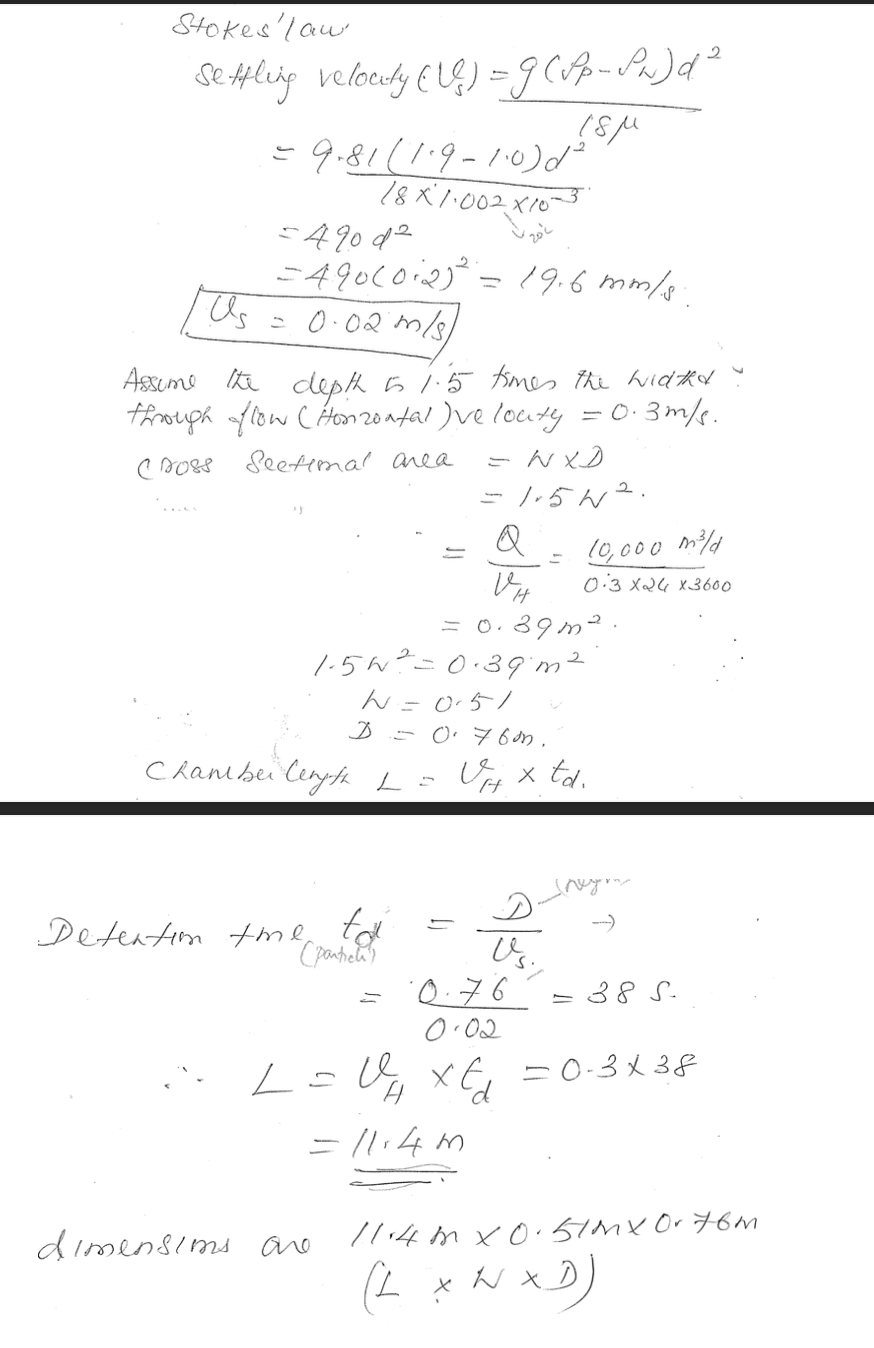 Stokes' law
Settling velocity (Vs) = g(ρp - ρw)d² / 18μ
= 9.81(1.9 - 1.0)d² / 18 × 1.002 × 10⁻³
= 490 d²
= 490(0.2)² = 19.6 mm/s.
Vs = 0.02 m/s
Assume the depth is 1.5 times the width
through flow (Horizontal) velocity = 0.3 m/s.
Cross Sectional area = W × D
= 1.5 W².
= Q / VH = 10,000 m³/d / 0.3 × 24 × 3600
= 0.39 m².
1.5 W² = 0.39 m²
W = 0.51
D = 0.76 m.
Chamber length L = VH × td.
Detention time td = D / Vs. →
(particle)
= 0.76 / 0.02 = 38 S.
∴ L = VH × td = 0.3 × 38
= 11.4 m
dimensions are 11.4 m × 0.51 m × 0.76 m
(L × W × D)